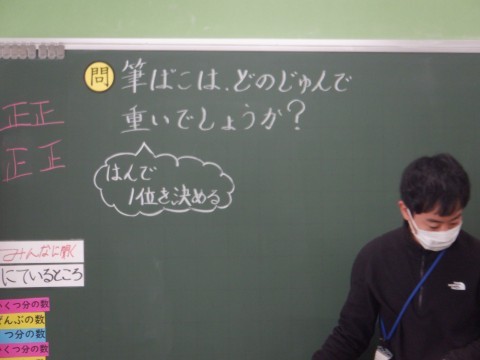 問 筆ばこは、どのじゅんで
重いでしょうか？
はんで
1位を決める
正正
正正
みんなに
にているところ
くつ分の数
ぜんぶの数
つ分の数
くつ分の数
THE NORTH FACE